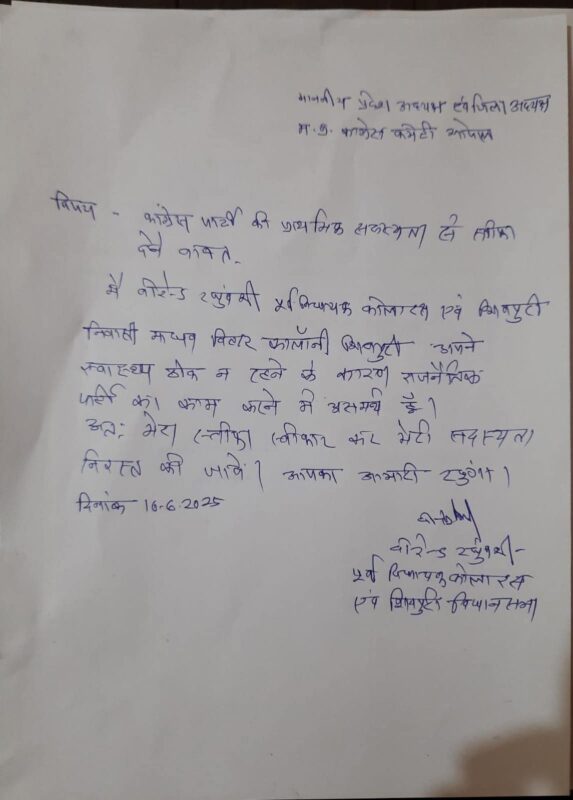 माननीय प्रदेश अध्यक्ष एवं जिला अध्यक्ष
म.प्र. कांग्रेस कमेटी भोपाल
विषय - कांग्रेस पार्टी की प्राथमिक सदस्यता से स्तीफा
देने बावत.
मै वीरेन्द्र रघुवंशी पूर्व विधायक कोलारस एवं शिवपुरी
निवासी माधव विहार कालॉनी शिवपुरी अपने
स्वास्थ्य ठीक न रहने के कारण राजनैतिक
पार्टी का काम करने में असमर्थ हूँ।
अतः मेरा स्तीफा स्वीकार कर मेरी सदस्यता
निरस्त की जावे। आपका आभारी रहूंगा।
दिनांक 16-6-2025
वीरेन्द्र रघुवंशी -
पूर्व विधायक कोलारस
एवं शिवपुरी विधानसभा